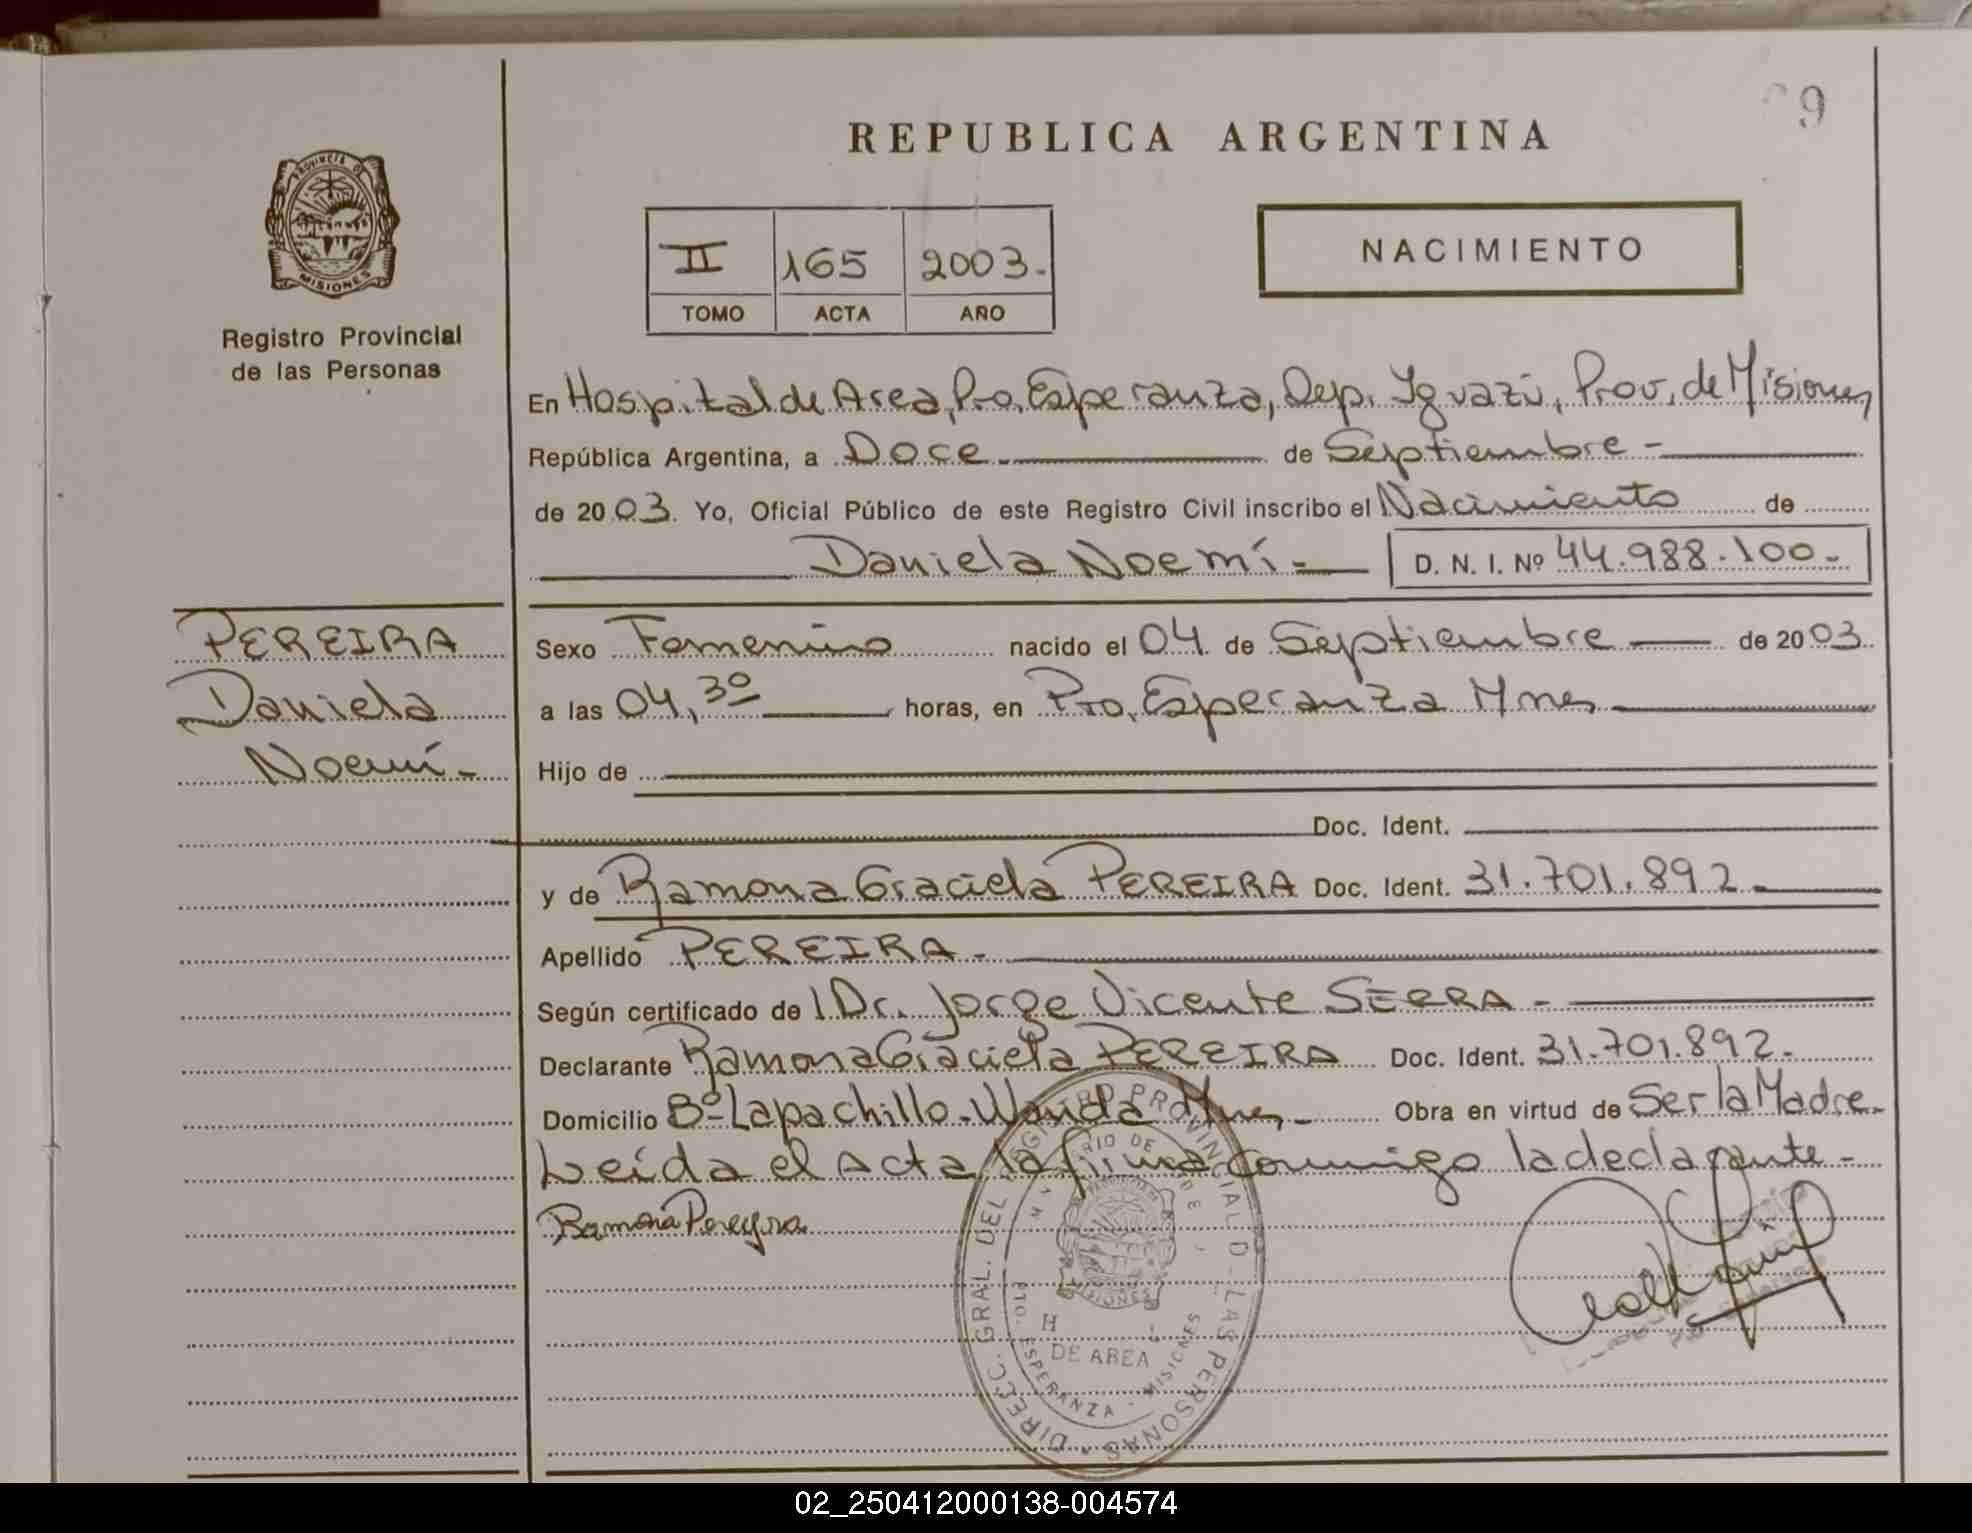 9
REPUBLICA ARGENTINA
PROVINCIA D
MISIONES
Registro Provincial
de las Personas
II 165 2003.-
TOMO ACTA AÑO
NACIMIENTO
En Hospital de Area, Pto. Esperanza, Dep. Iguazú, Prov. de Misiones
República Argentina, a Doce de Septiembre -
de 2003. Yo, Oficial Público de este Registro Civil inscribo el Nacimiento de
Daniela Noemí.- D. N. I. Nº 44.988.100.-
PEREIRA
Daniela
Noemí.-
Sexo Femenino nacido el 04 de Septiembre de 2003.
a las 04,30 horas, en Pto. Esperanza Mnes
Hijo de
Doc. Ident.
y de Ramona Graciela PEREIRA Doc. Ident. 31.701.892.
Apellido PEREIRA.-
Según certificado de l Dr. Jorge Vicente SERRA.-
Declarante Ramona Graciela PEREIRA Doc. Ident. 31.701.892.-
Domicilio Bº Lapachillo.Wanda Mnes.- Obra en virtud de Ser la Madre.-
Leída el Acta la firma conmigo la declarante.-
Ramona Pereyra
DIREC. GRAL. DEL REGISTRO PROVINCIAL D LAS PERSONAS
MISIONES
H
DE AREA
PTO. ESPERANZA - MISIONES
02_250412000138-004574